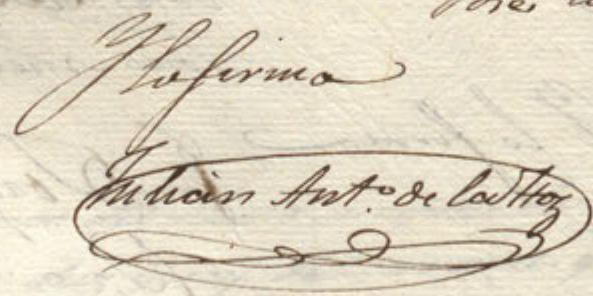 Y lo firma
Julian Ant.º de la Hoz